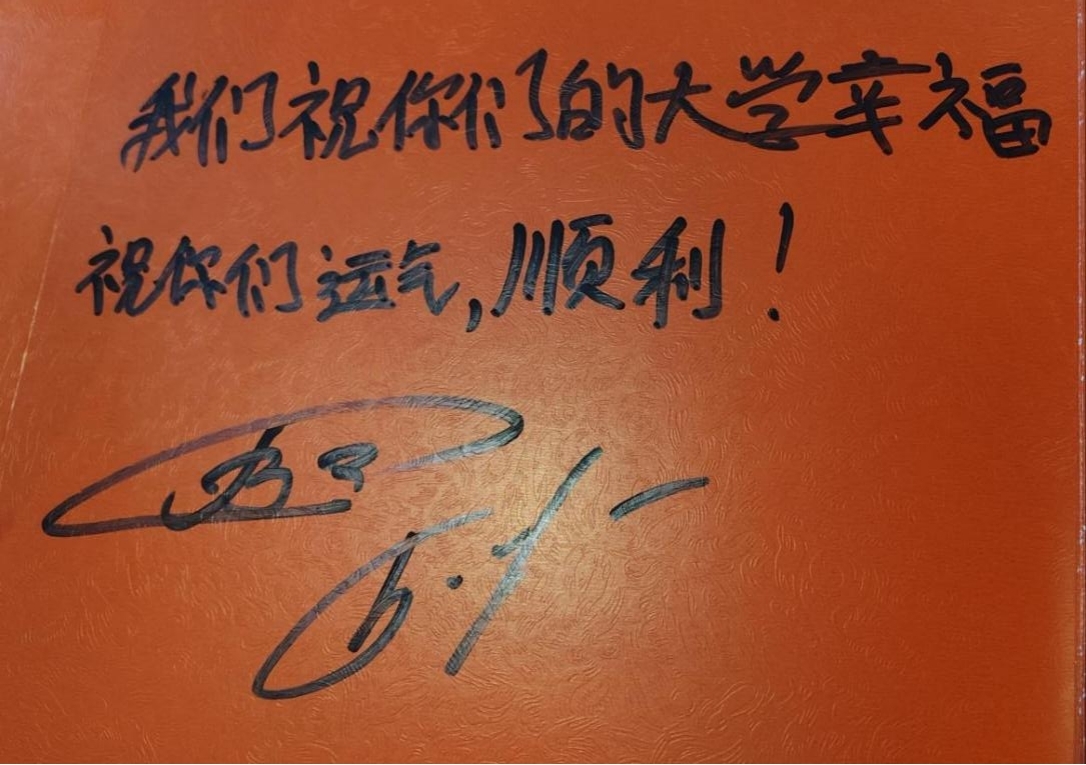 我们祝你们的大学幸福
祝你们运气,顺利!